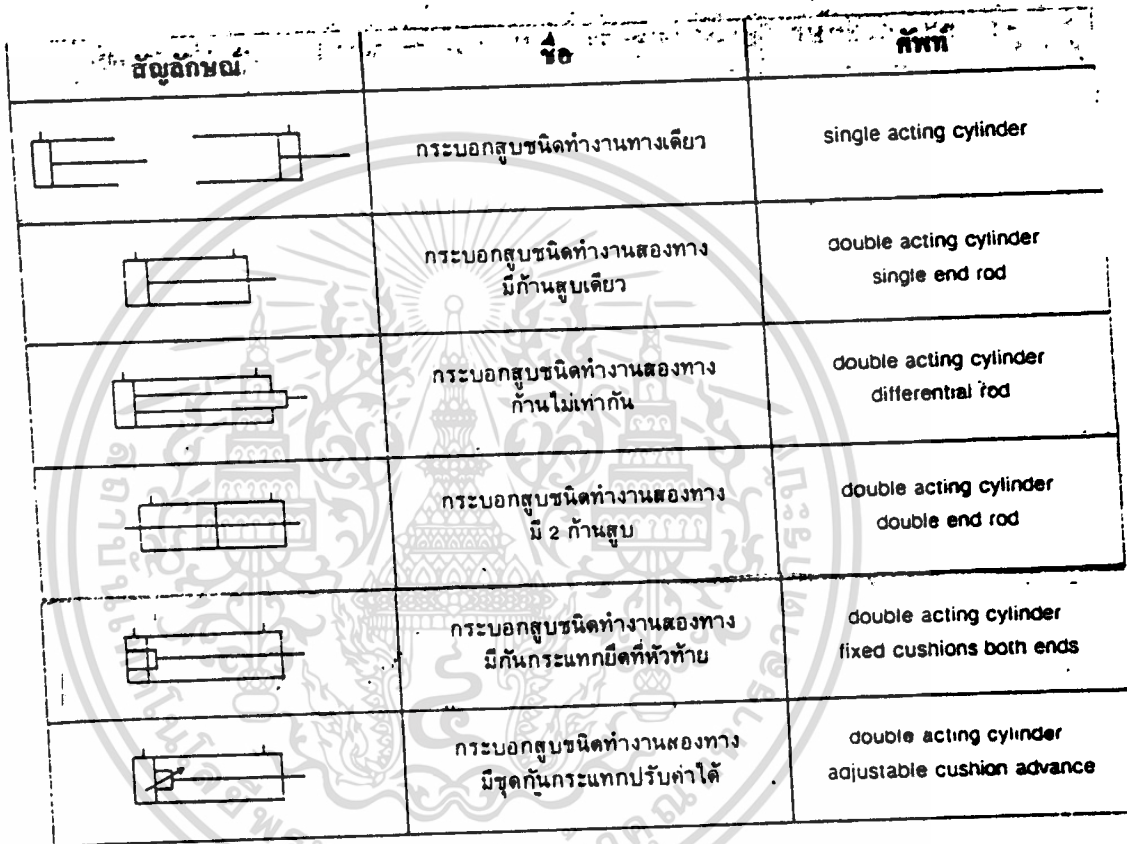 สัญลักษณ์
ชื่อ
ศัพท์
กระบอกสูบชนิดทำงานทางเดียว
single acting cylinder
กระบอกสูบชนิดทำงานสองทาง
มีก้านสูบเดียว
double acting cylinder
single end rod
กระบอกสูบชนิดทำงานสองทาง
ก้านไม่เท่ากัน
double acting cylinder
differential rod
กระบอกสูบชนิดทำงานสองทาง
มี 2 ก้านสูบ
double acting cylinder
double end rod
กระบอกสูบชนิดทำงานสองทาง
มีกันกระแทกยึดที่หัวท้าย
double acting cylinder
fixed cushions both ends
กระบอกสูบชนิดทำงานสองทาง
มีชุดกันกระแทกปรับค่าได้
double acting cylinder
adjustable cushion advance